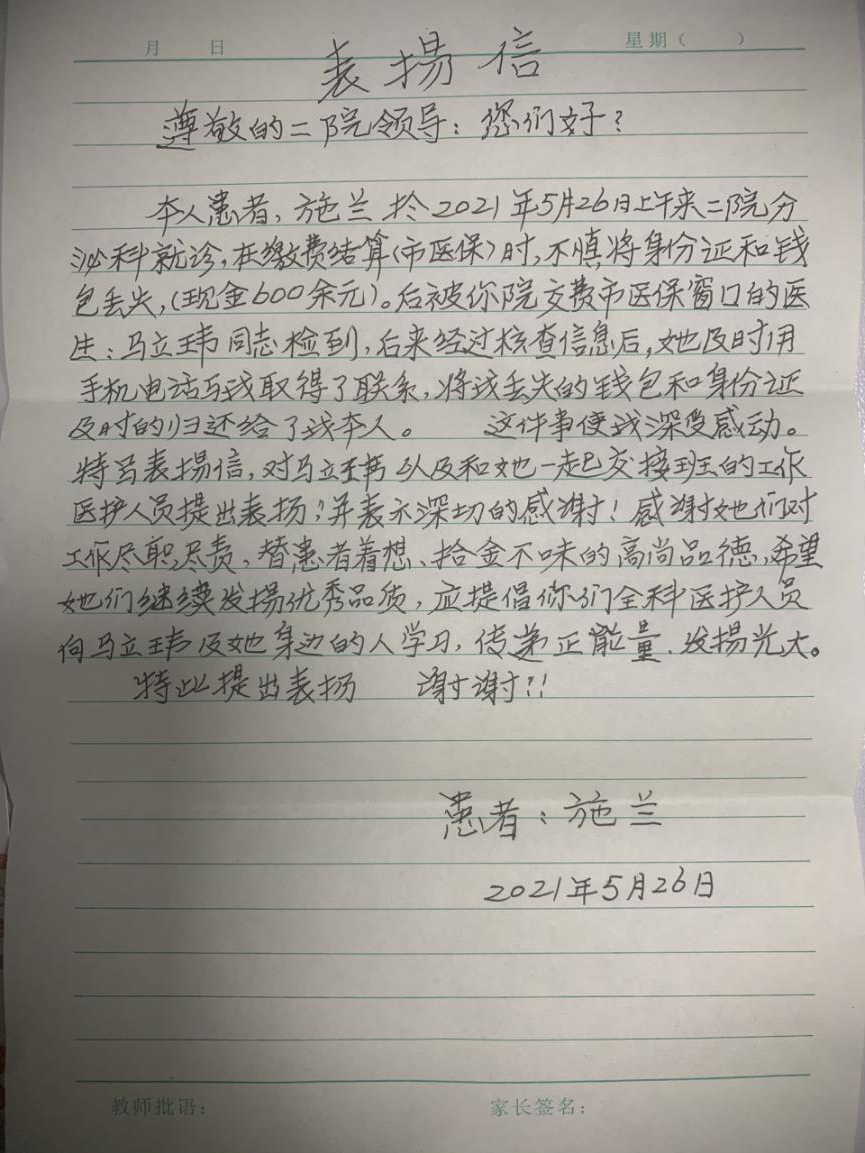 月 日 星期( )
表揚信
尊敬的二院领导：您们好？
本人患者，施兰於2021年5月26日上午来二院分
泌科就诊，在缴费结算(市医保)时，不慎将身份证和钱
包丢失，(现金600余元)。后被你院交费市医保窗口的医
生：马立玮同志检到，后来经过核查信息后，她及时用
手机电话与我取得了联系，将我丢失的钱包和身份证
及时的归还给了我本人。 这件事使我深受感动。
特写表揚信，对马立玮以及和她一起交接班的工作
医护人员提出表扬！并表示深切的感谢！感谢她们对
工作尽职,尽责，替患者着想、拾金不味的高尚品德,希望
她们继续发揚优秀品质，应提倡你们全科医护人员
向马立玮及她身边的人学习，传递正能量.发揚光大。
特此提出表扬 谢谢!!
患者：施兰
2021年5月26日
教师批语： 家长签名：